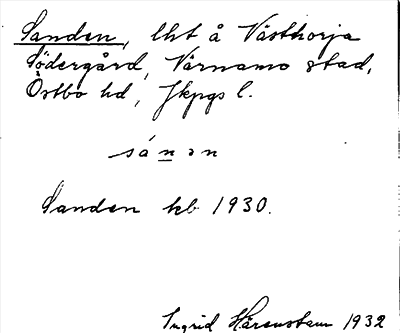 Sanden, lht å Västhorja
Södergård, Värnamo stad,
Östbo hd, Jkpgs l.
sánən
Sanden kb 1930.
Ingrid Hårenstam 1932